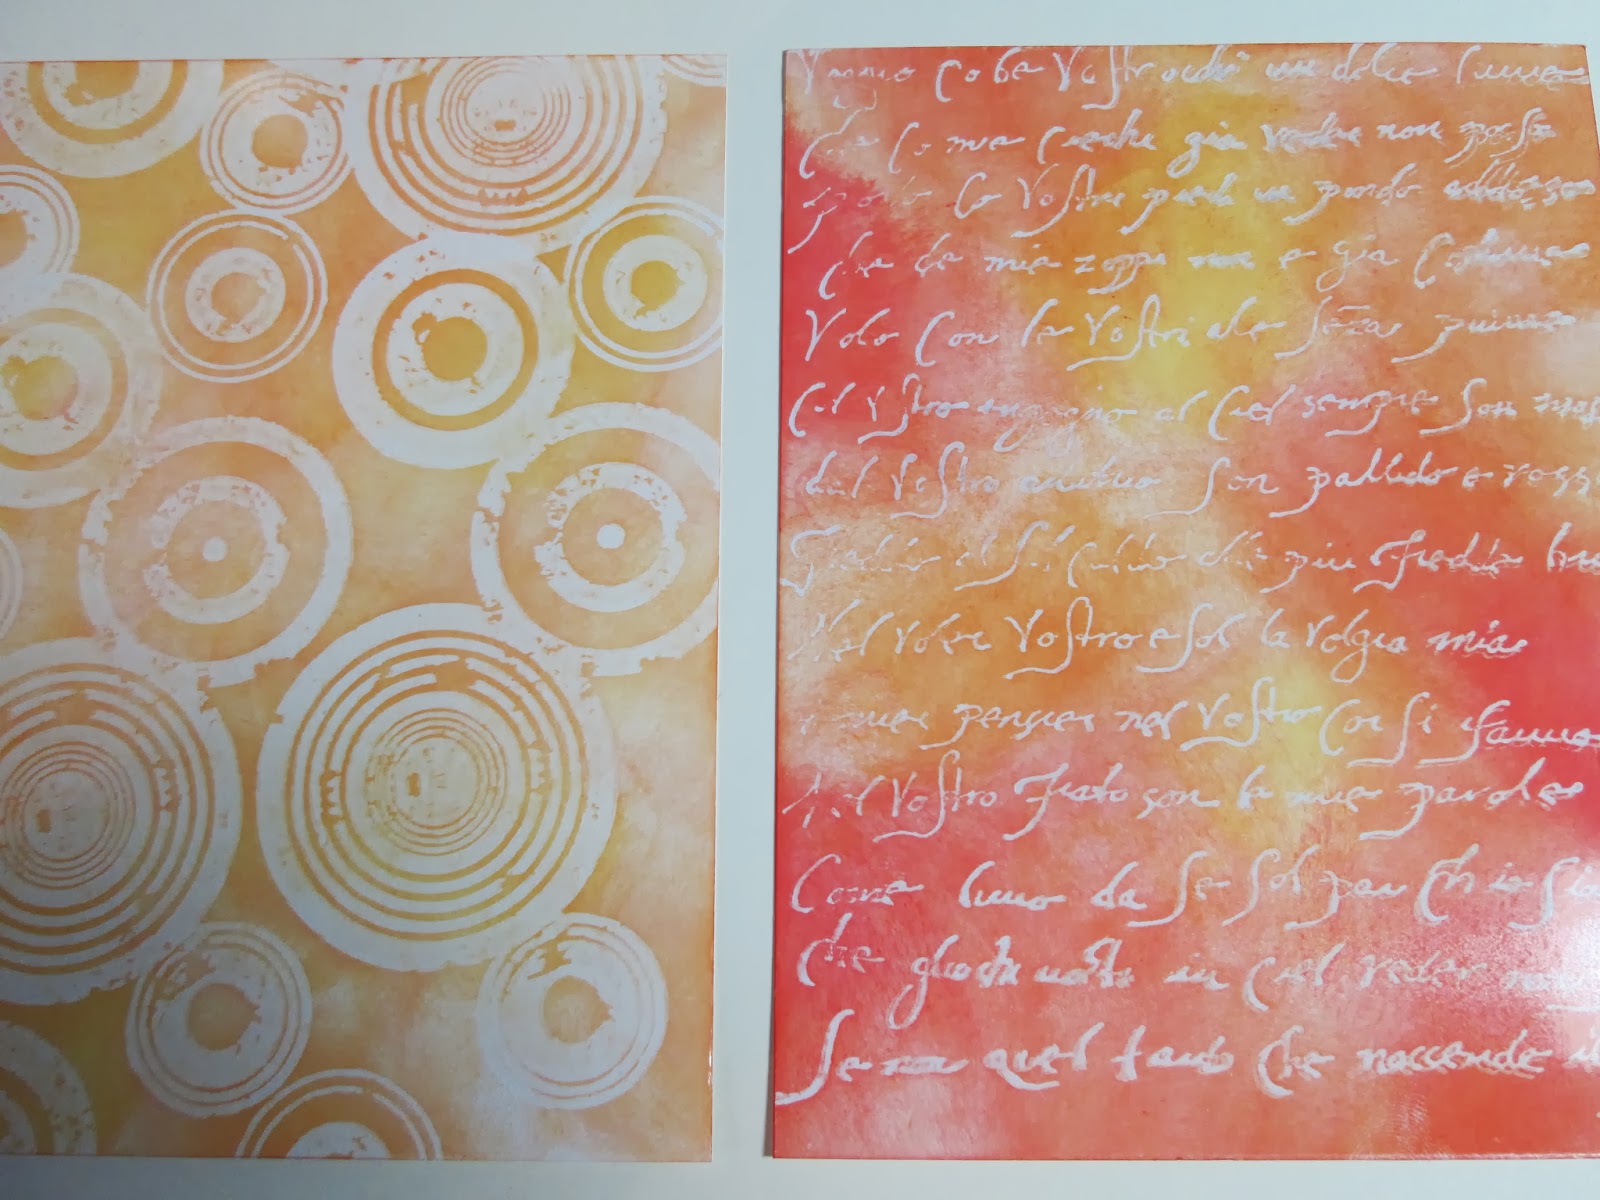 co be Vostrochi un dolce lume
che co mie ciechi gia veder non posso
co Vostri piedi un pondo
che de mie zoppi non e gia Costume
Volo Con le Vostri ale seza piume
Col Vostro ingegno al ciel sempre son mos
dal Vostro son pallido e ross
al sol alle piu fredde bru
Nel voler Vostro e sol la voglia mia
i miei pensier nel Vostro Cor si fanno
Nel Vostro fiato son le mie parole
Come luna da se sol par Ch io sia
che in ciel veder non
Se non quel tanto Che naccende il